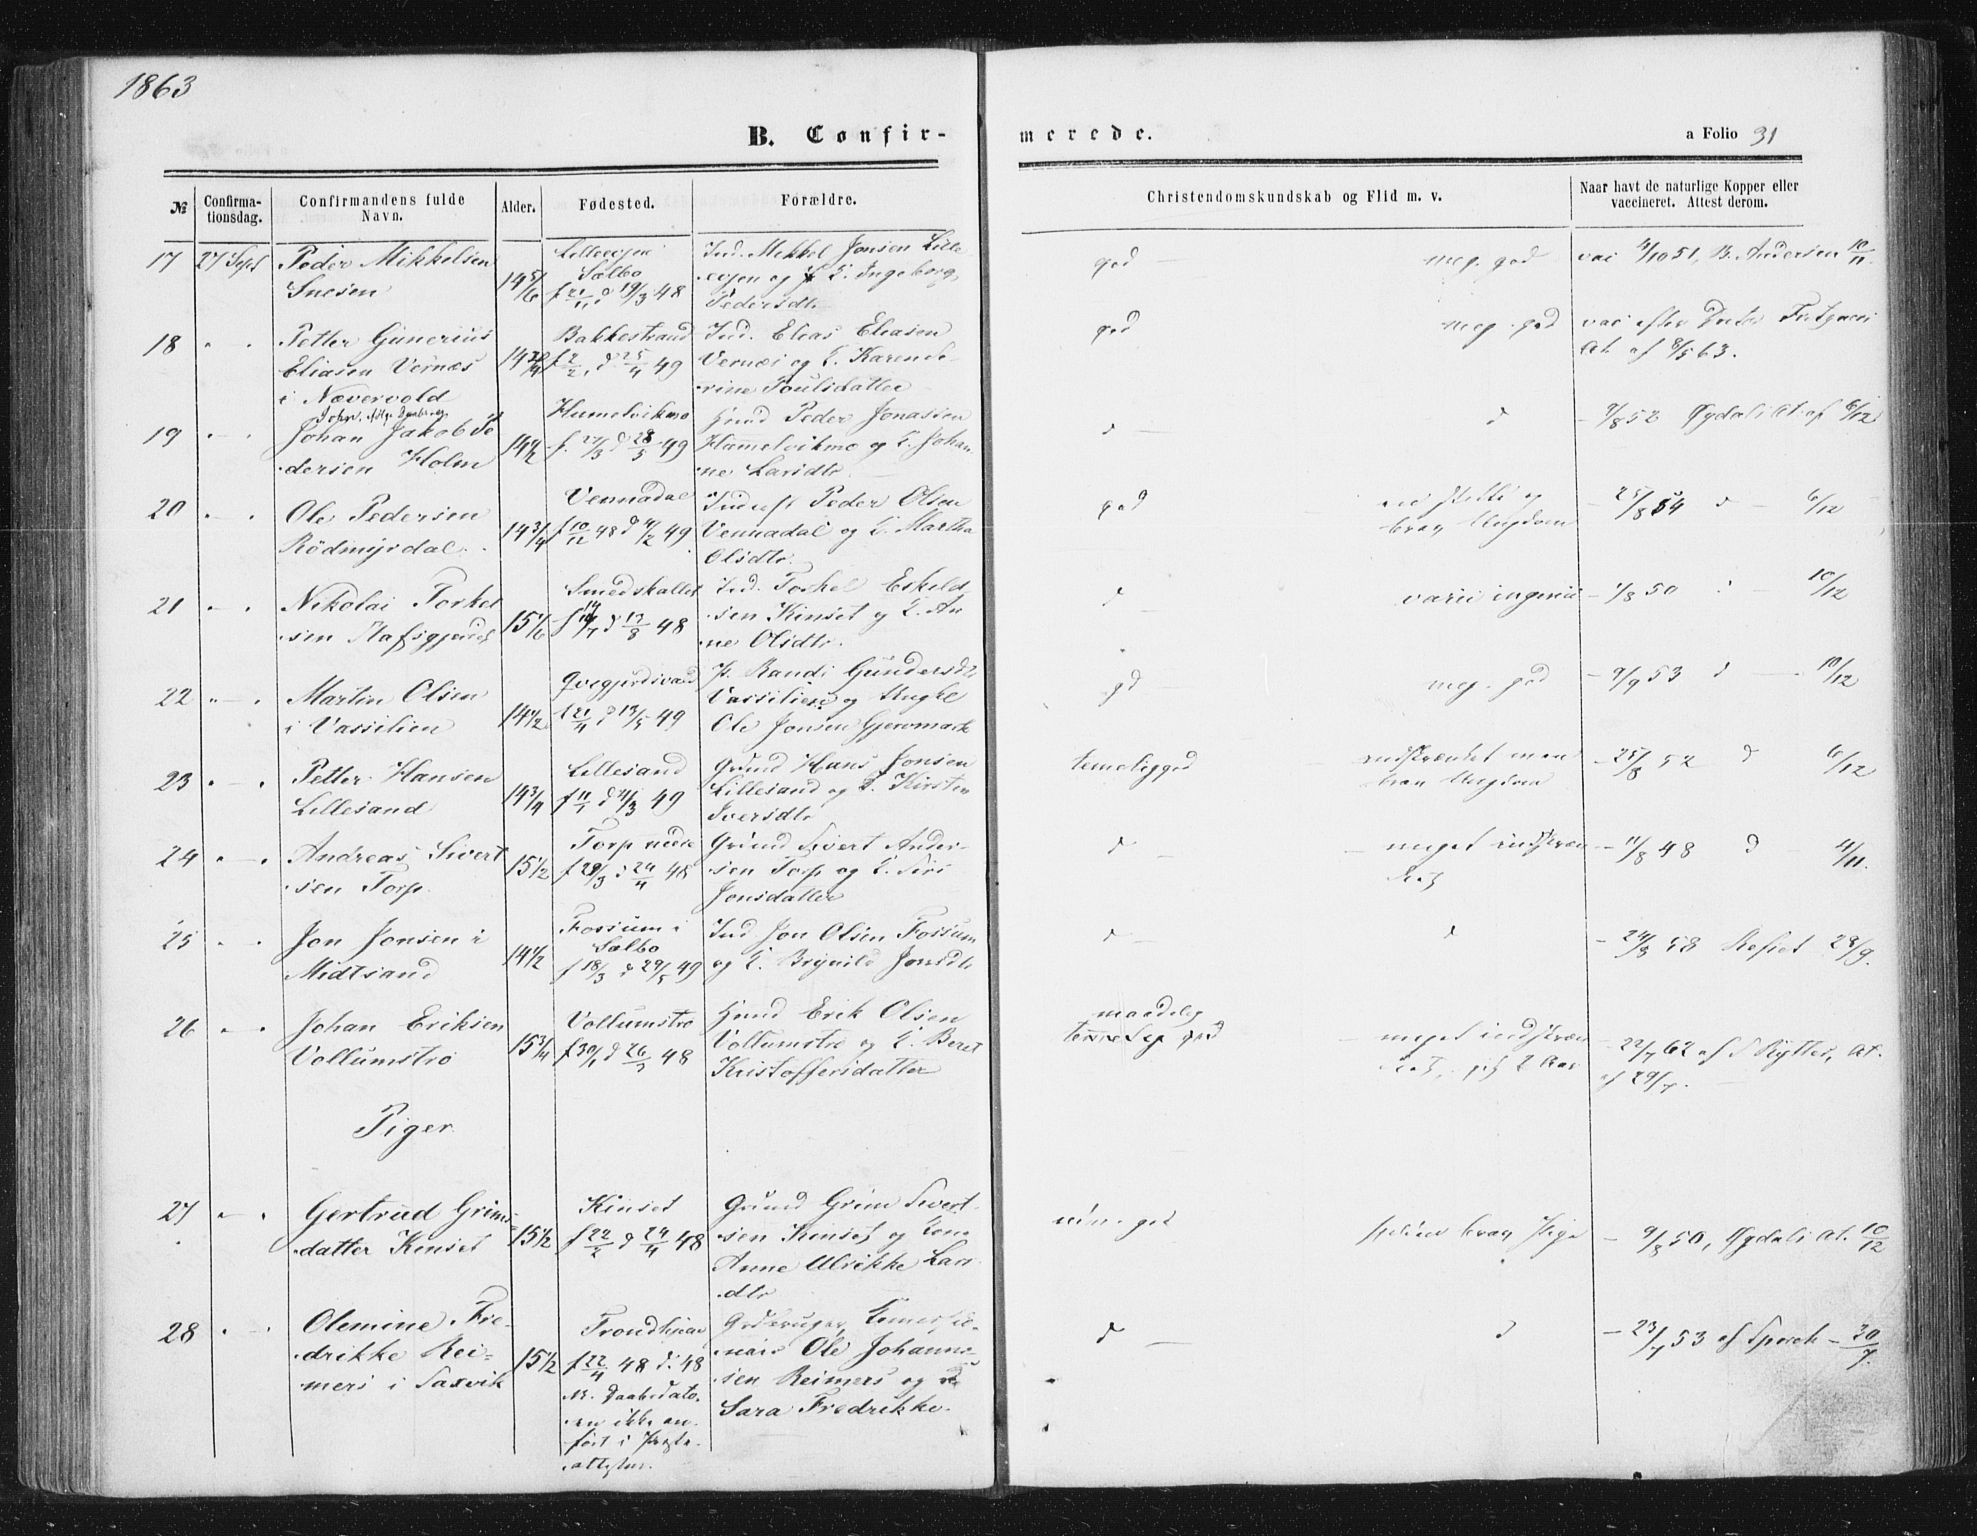 1863
B. Confir-
merede.
a Folio 31
№
Confirma-
tionsdag.
Confirmandens fulde
Navn.
Alder.
Fødested.
Forældre.
Christendomskundskab og Flid m. v.
Naar havt de naturlige Kopper eller
vaccineret. Attest derom.
17 27 Sept Peder Mikkelsen
Snesen
14 5/6
Selbo
f 21/11 d 19/3 48
Ind. Mikkel Jonsen Lille
evjen og K. Ingeborg
Pedersdtr
god
meg. god
vac 4/10 51, B. Andersen 10/11
18 " "
Petter Gunerius
Eliasen Vernæs
i Nævervold
14 3/4
Bakkestrand
f 2/2 d 25/4 49
Ind. Elias Eliasen
Vernæs og K. Karen Se-
rine Poulsdatter
god
meg. god
At. af 8/5 63.
19 " "
Johan Jakob Pe
dersen Holm
14 1/2
Humelvikmo
f. 27/3 d 28/5 49
Hmd Peder Jonassen
Hammelvikmo og K. Johan
ne Larsdtr
d
d
- 9/8 52 Hydals At. af 6/12
20 " "
Ole Pedersen
Rödmyrdal.
14 3/4
Vennadal
f 10/12 48 d 4/2 49
Indrst Peder Olsen
Vennadal og K. Martha
Olsdtr.
god
brav Ungdom
- 25/8 54 d - 6/12
21 " "
Nikolai Torkel
sen Hafsgjerdet
15 1/6
Smedshallet
f 14/7 d 13/8 48
Ind. Torkel Eskild
sen Kinset og K. An
ne Olsdtr.
d
varii ingenii
- 1/8 50 10/12
22 " "
Martin Olsen
i Vassilien
14 1/2
f 21/4 d 13/5 49
P. Randi Gundersdtr
Vassilien og Ungkl
Ole Jonsen Gjervmark
gd
meg. god
- 9/9 53 d - 10/12
23 " "
Petter Hansen
Lillesand
14 3/4
Lillesand
f 11/1 d 4/3 49
Grdmd Hans Jonsen
Lillesand og K. Kirsten
Iversdtr
temelig god
indskrænket men
brav Ungdom
- 25/8 52 d 6/12
24 " "
Andreas Sivert
sen Torp.
15 1/2
Torp nedre
f 28/3 d 24/4 48
Grdmd Sivert Ander-
sen Torp og K. Siri
Jonsdatter
d
meget indskræn
ket
- 11/8 48 d - 4/11.
25 " "
Jon Jonsen i
Midtsand
14 1/2
Fossum i
Selbo
f 18/3 d 29/5 49
Ind Jon Olsen Fossum
og K. Brynild Jonsdtr
d
d
- 24/8 58 Refset 28/9.
26 " "
Johan Eriksen
Vollumstrø
15 3/4
Vollumstrø
f 30/1 d 26/3 48
Hmd Erik Olsen
Vollumstrø og K. Beret
Kristoffersdatter
maadelig
temelig god
meget indskræn
ket, gik 2 Aar
- 22/7 62 af S Rytter, At.
af 29/7.
Piger
27 " "
Gertrud Grims-
datter Kinset
15 1/2
Kinset
f 22/2 d 24/4 48
Grdmd Grim Sivert-
sen Kinset og Kone
Anne Ulrikke Lars
dtr
brav Pige
- 9/8 50, Hydals At. 10/12
28 " "
Olemine Fre-
drikke Rei-
mers i Saxvik
15 1/2
Trondhjem
f 22/4 48 d. 48
NB. Daabsdato-
en ikke an-
ført i Præste-
attesten.
Ole Johanne-
sen Reimers og
Sara Fredrikke.
d
d
- 23/7 53 af Spørck - 30/7.